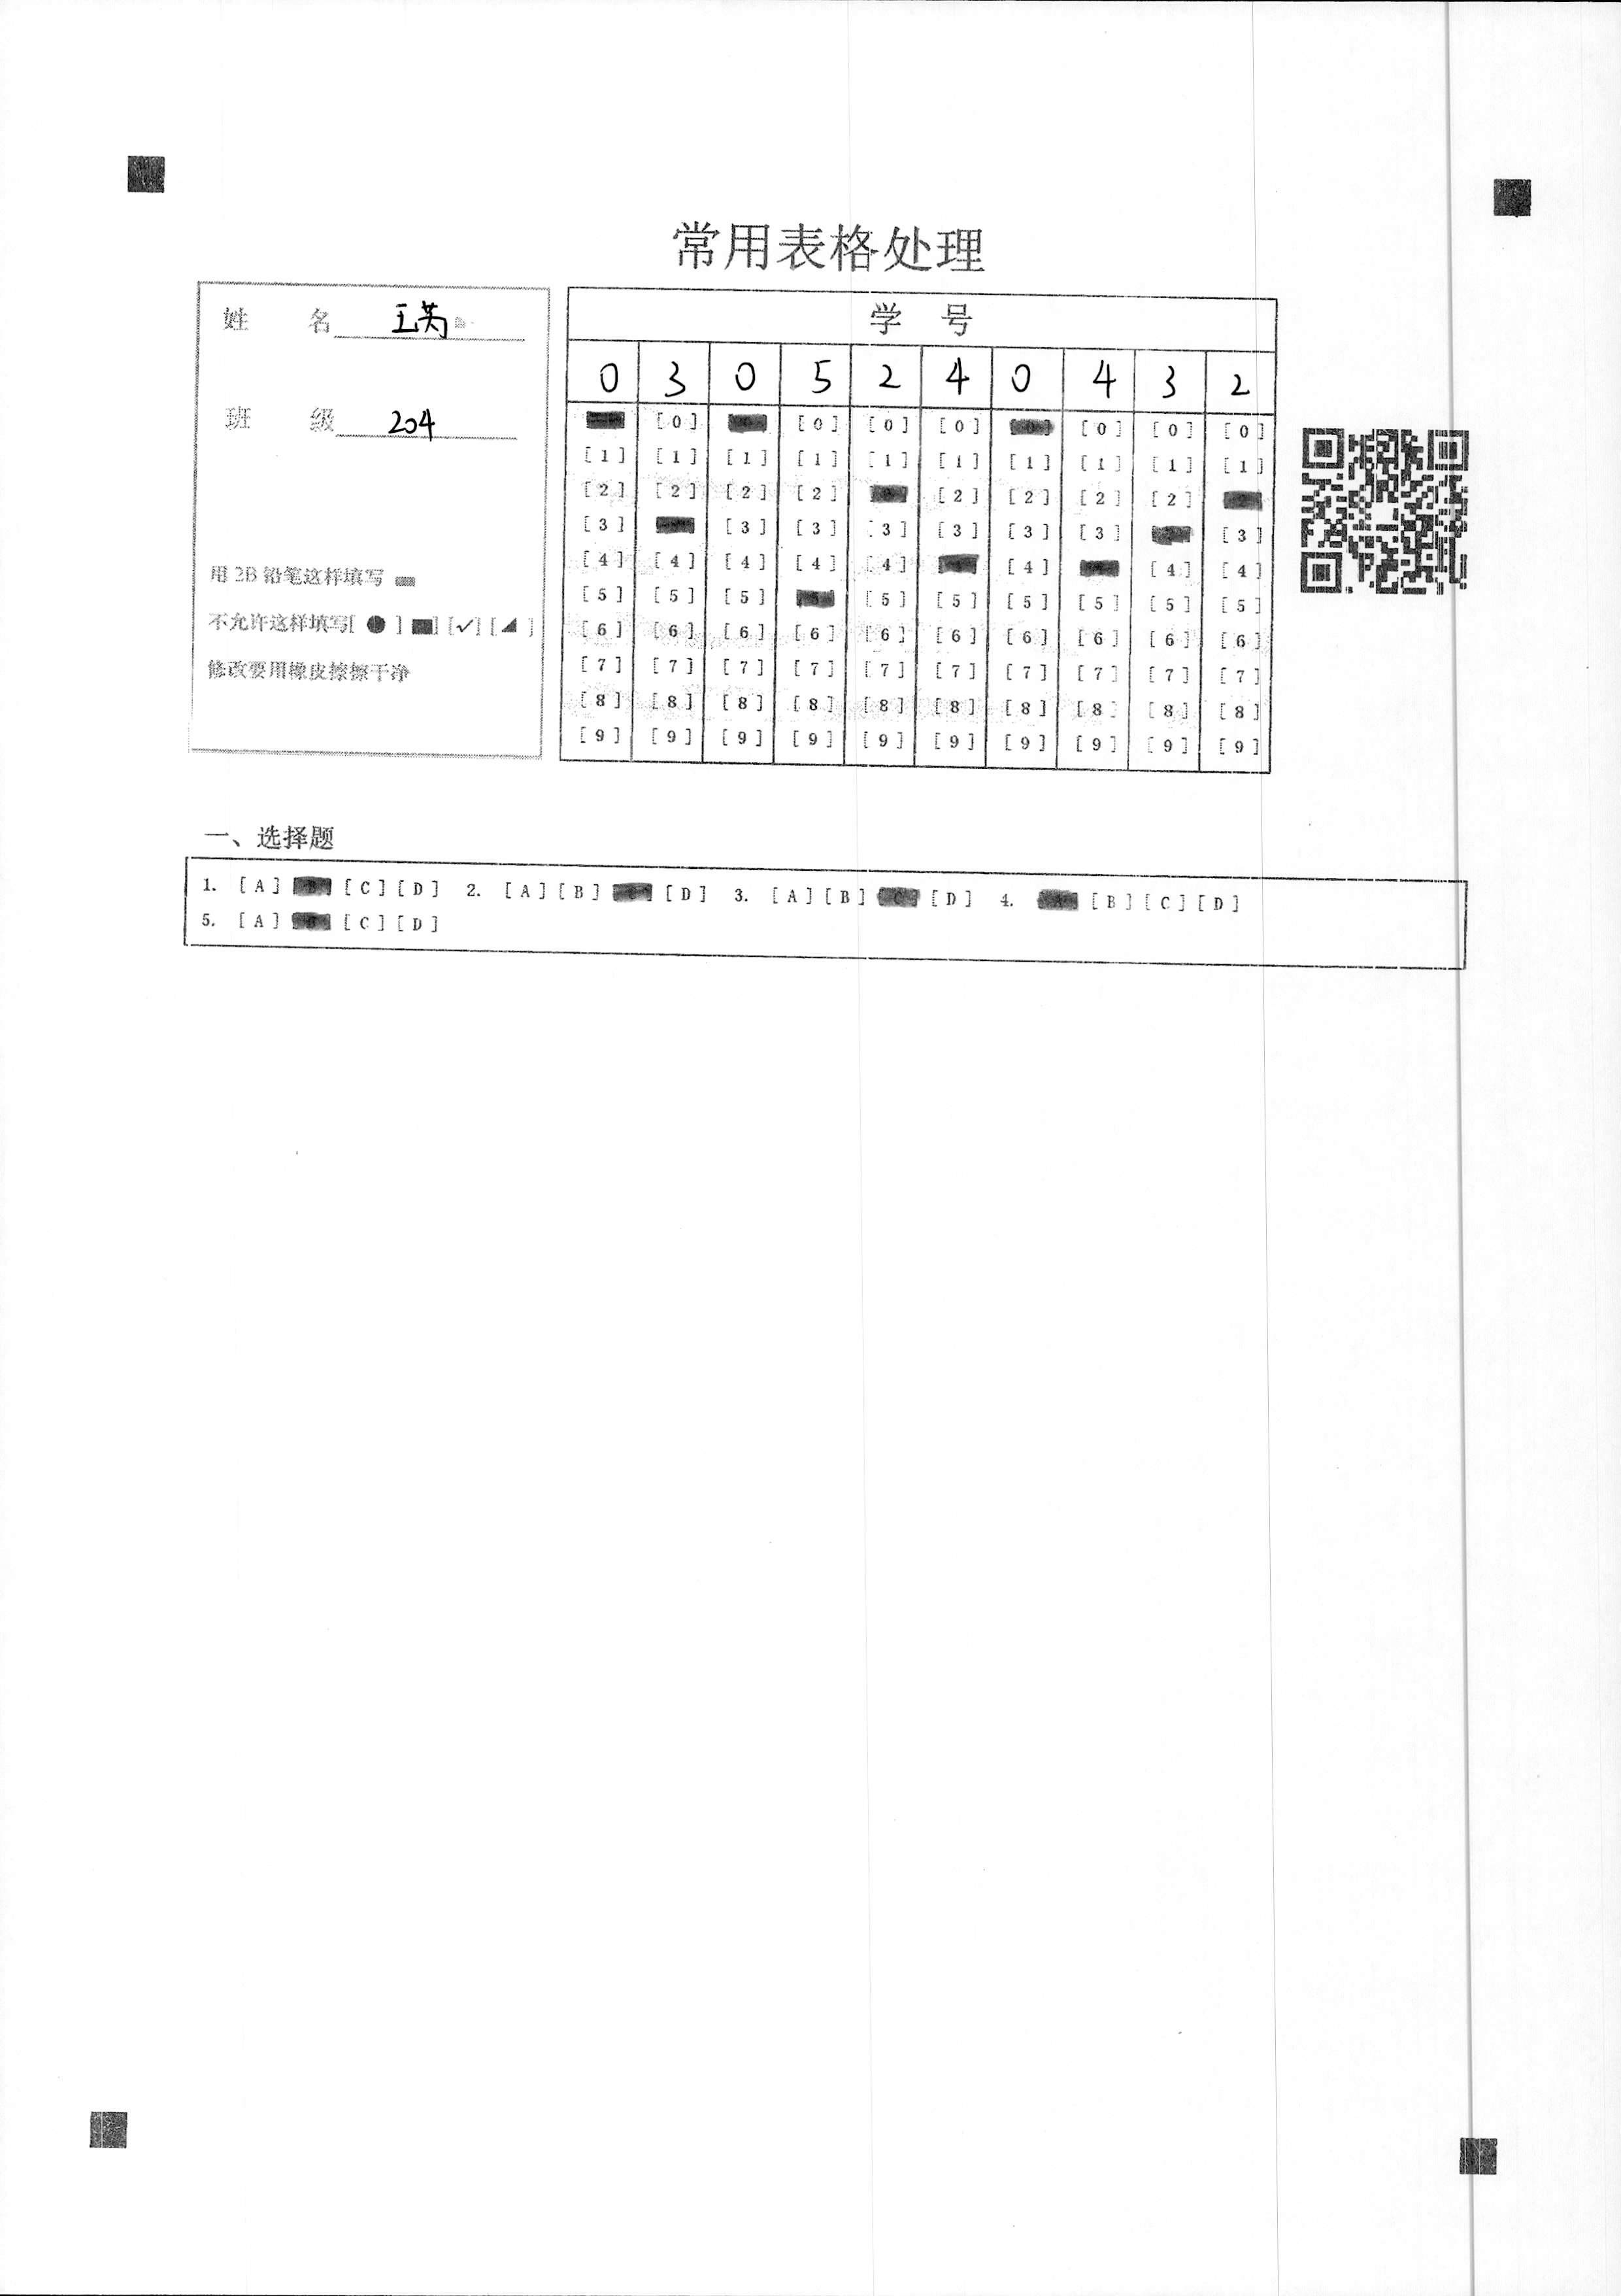 常用表格处理
姓 名 王芮
班 级 204
用 2B 铅笔这样填写
不允许这样填写[ ● ] ■] [✓] [◢ ]
修改要用橡皮擦擦干净
学 号
0 3 0 5 2 4 0 4 3 2
[0] [0] [0] [0] [0] [0] [0]
[1] [1] [1] [1] [1] [1] [1] [1] [1] [1]
[2] [2] [2] [2] [2] [2] [2] [2]
[3] [3] [3] [3] [3] [3] [3] [3]
[4] [4] [4] [4] [4] [4] [4] [4]
[5] [5] [5] [5] [5] [5] [5] [5] [5]
[6] [6] [6] [6] [6] [6] [6] [6] [6] [6]
[7] [7] [7] [7] [7] [7] [7] [7] [7] [7]
[8] [8] [8] [8] [8] [8] [8] [8] [8] [8]
[9] [9] [9] [9] [9] [9] [9] [9] [9] [9]
一、选择题
1. [A] [C] [D] 2. [A] [B] [D] 3. [A] [B] [C] [D] 4. [B] [C] [D]
5. [A] [C] [D]